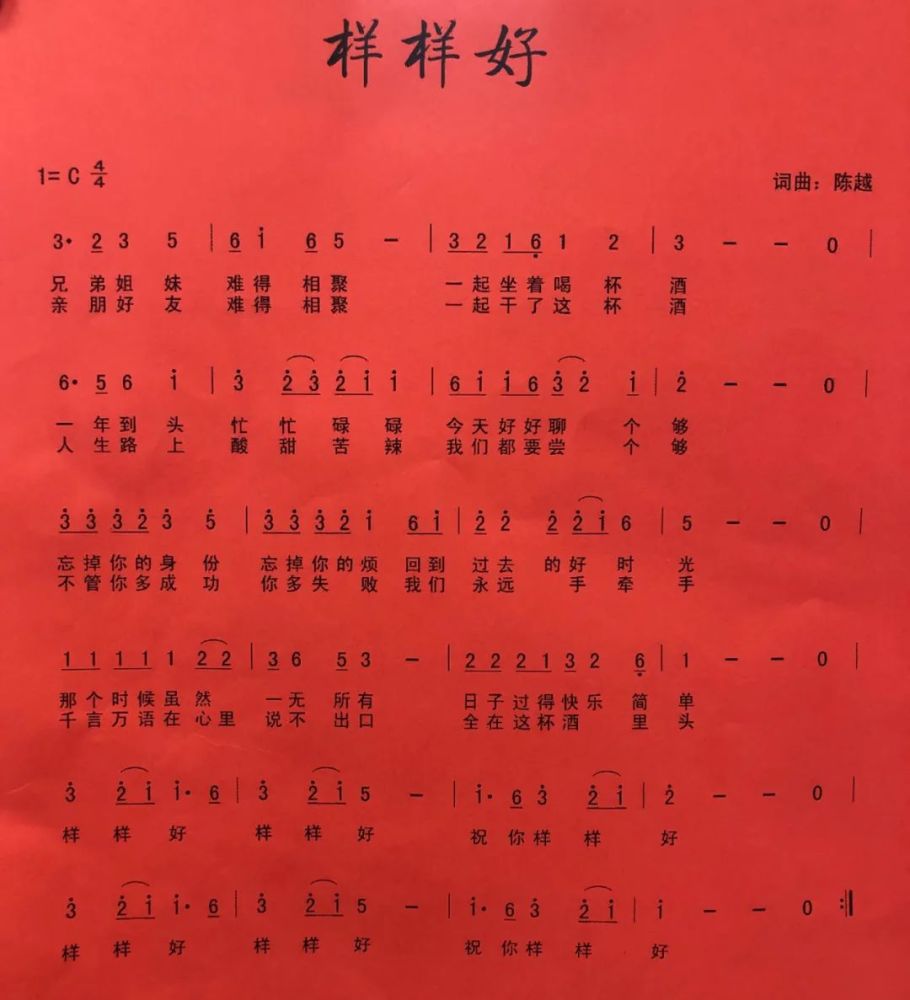 样样好
1= C 4/4
词曲：陈越
3· 2 3 5 | 6 i 6 5 — | 3 2 1 6 1 2 | 3 — — 0 |
兄弟姐妹 难得相聚 一起坐着喝杯酒
亲朋好友 难得相聚 一起干了这杯酒
6· 5 6 i | 3 2 3 2 i i | 6 i i 6 3 2 i | 2 — — 0 |
一年到头 忙忙碌碌 今天好好聊个够
人生路上 酸甜苦辣 我们都要尝个够
3 3 3 2 3 5 | 3 3 3 2 i 6 i | 2 2 2 2 i 6 | 5 — — 0 |
忘掉你的身份 忘掉你的烦 回到 过去的好时光
不管你多成功 你多失败 我们 永远 手牵手
1 1 1 1 1 2 2 | 3 6 5 3 — | 2 2 2 1 3 2 6 | 1 — — 0 |
那个时候虽然 一无所有 日子过得快乐简单
千言万语在心里 说不出口 全在这杯酒里头
3 2 i i· 6 | 3 2 i 5 — | i· 6 3 2 i | 2 — — 0 |
样样好 样样好 祝你样样好
3 2 i i· 6 | 3 2 i 5 — | i· 6 3 2 i | i — — 0 :‖
样样好 样样好 祝你样样好